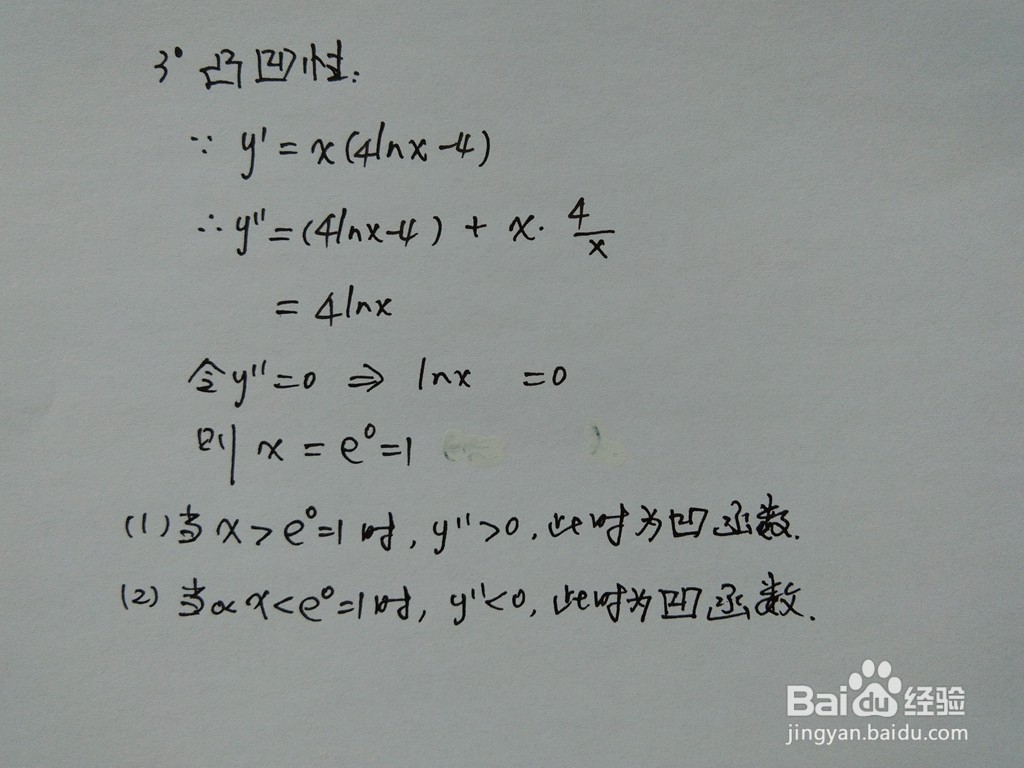 3° 凸凹性:
∵ y' = x(4lnx-4)
∴ y'' = (4lnx-4) + x·4/x
= 4lnx
令y''=0 ⇒ lnx =0
则 x = e⁰=1
(1)当 x > e⁰=1 时, y''>0, 此时为凹函数.
(2)当0< x < e⁰=1时, y''<0, 此时为凹函数.
Baidu经验
jingyan.baidu.com